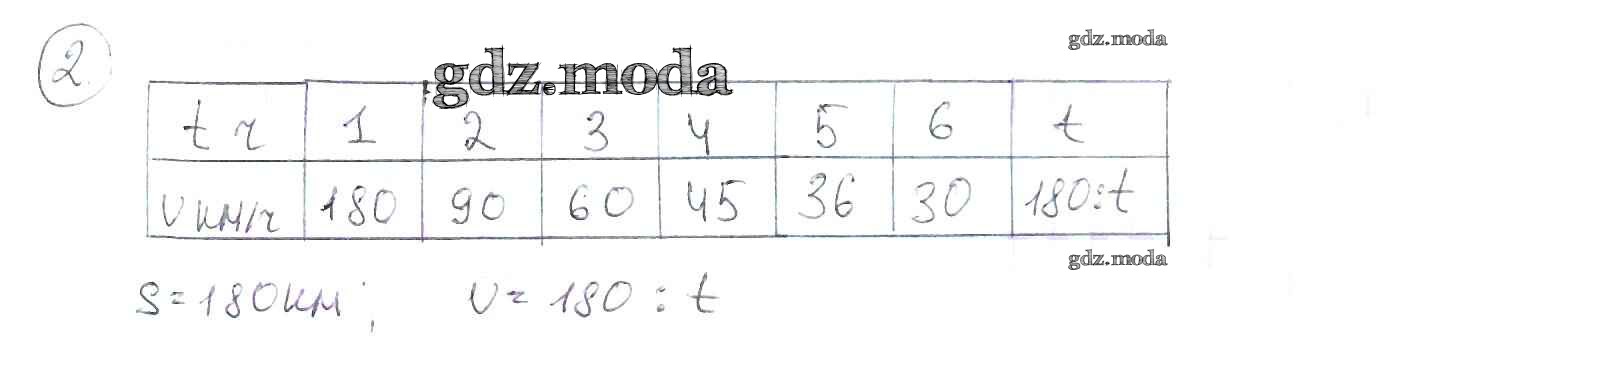 gdz.moda
2.
gdz.moda
t ч 1 2 3 4 5 6 t
v км/ч 180 90 60 45 36 30 180:t
gdz.moda
s=180км; v=180:t